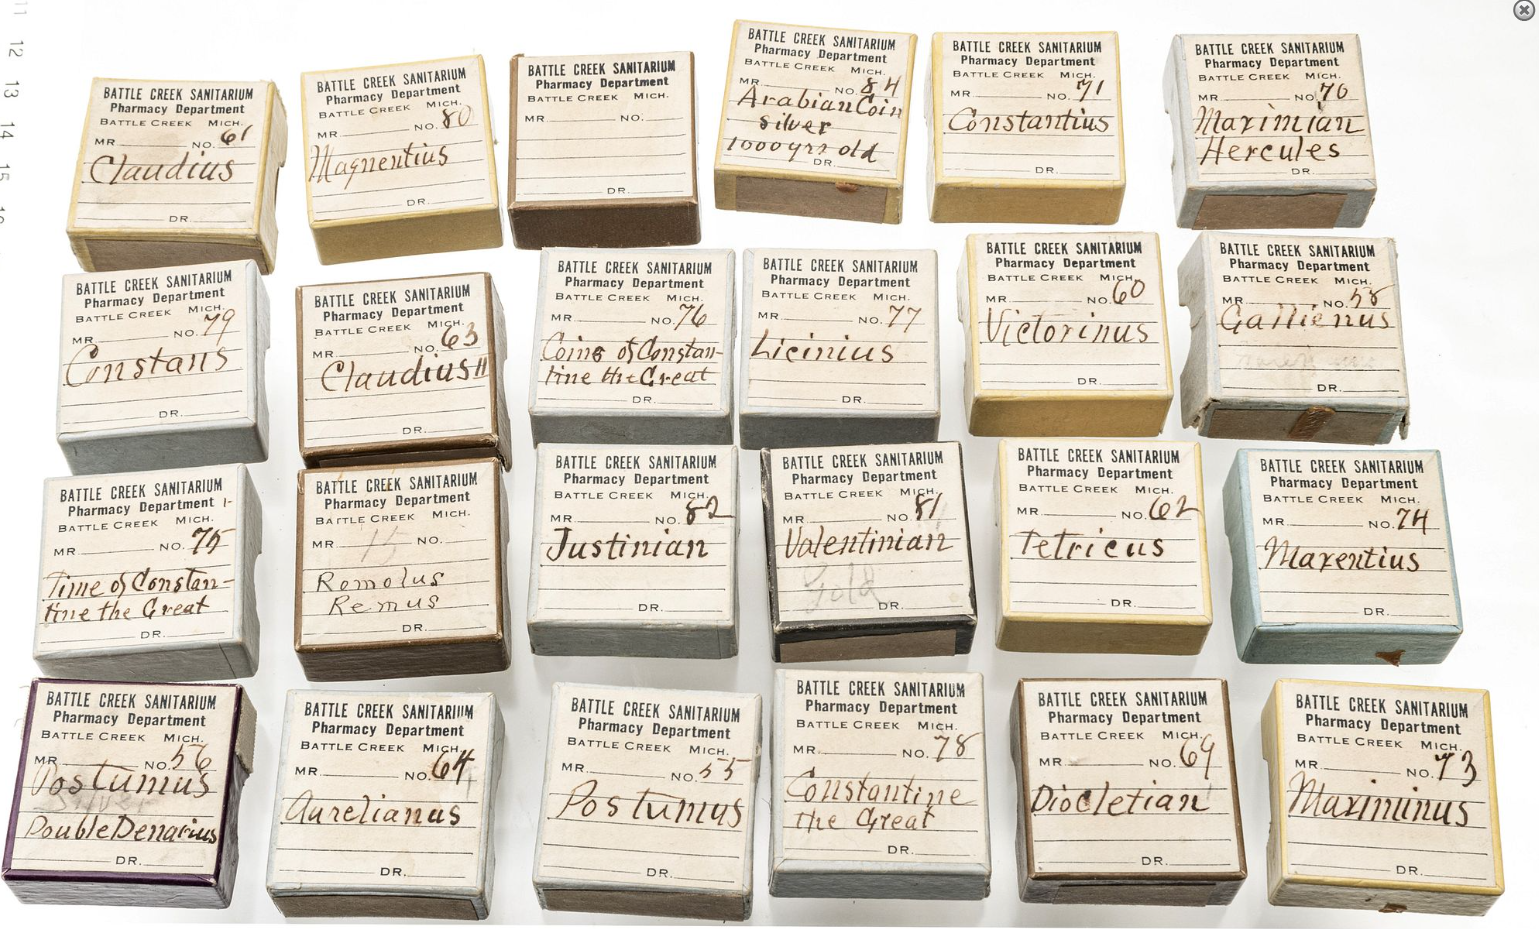 11
12
13
14
15
BATTLE CREEK SANITARIUM
Pharmacy Department
BATTLE CREEK MICH.
MR NO. 61
Claudius
DR.
BATTLE CREEK SANITARIUM
Pharmacy Department
BATTLE CREEK MICH.
MR NO. 80
Magnentius
DR.
BATTLE CREEK SANITARIUM
Pharmacy Department
BATTLE CREEK MICH.
MR NO.
DR.
BATTLE CREEK SANITARIUM
Pharmacy Department
BATTLE CREEK MICH.
MR NO. 84
Arabian Coin
silver
1000 yrs old
DR.
BATTLE CREEK SANITARIUM
Pharmacy Department
BATTLE CREEK MICH.
MR NO. 71
Constantius
DR.
BATTLE CREEK SANITARIUM
Pharmacy Department
BATTLE CREEK MICH.
MR NO. 70
Maximian
Hercules
DR.
BATTLE CREEK SANITARIUM
Pharmacy Department
BATTLE CREEK MICH.
MR NO. 79
Constans
DR.
BATTLE CREEK SANITARIUM
Pharmacy Department
BATTLE CREEK MICH.
MR NO. 63
Claudius II
DR.
BATTLE CREEK SANITARIUM
Pharmacy Department
BATTLE CREEK MICH.
MR NO. 76
Coins of Constan-
tine the Great
DR.
BATTLE CREEK SANITARIUM
Pharmacy Department
BATTLE CREEK MICH.
MR NO. 77
Licinius
DR.
BATTLE CREEK SANITARIUM
Pharmacy Department
BATTLE CREEK MICH.
MR NO. 60
Victorinus
DR.
BATTLE CREEK SANITARIUM
Pharmacy Department
BATTLE CREEK MICH.
MR NO.
Gallienus
DR.
BATTLE CREEK SANITARIUM
Pharmacy Department
BATTLE CREEK MICH.
MR NO. 75
Time of Constan-
tine the Great
DR.
BATTLE CREEK SANITARIUM
Pharmacy Department
BATTLE CREEK MICH.
MR 15 NO.
Romolus
Remus
DR.
BATTLE CREEK SANITARIUM
Pharmacy Department
BATTLE CREEK MICH.
MR NO. 82
Justinian
DR.
BATTLE CREEK SANITARIUM
Pharmacy Department
BATTLE CREEK MICH.
MR NO. 81
Valentinian
Gold
DR.
BATTLE CREEK SANITARIUM
Pharmacy Department
BATTLE CREEK MICH.
MR NO. 62
Tetricus
DR.
BATTLE CREEK SANITARIUM
Pharmacy Department
BATTLE CREEK MICH.
MR NO. 74
Maxentius
DR.
BATTLE CREEK SANITARIUM
Pharmacy Department
BATTLE CREEK MICH.
MR NO. 56
Postumus
Silver
Double Denarius
DR.
BATTLE CREEK SANITARIUM
Pharmacy Department
BATTLE CREEK MICH.
MR NO. 64
Aurelianus
DR.
BATTLE CREEK SANITARIUM
Pharmacy Department
BATTLE CREEK MICH.
MR NO. 55
Postumus
DR.
BATTLE CREEK SANITARIUM
Pharmacy Department
BATTLE CREEK MICH.
MR NO. 78
Constantine
the Great
DR.
BATTLE CREEK SANITARIUM
Pharmacy Department
BATTLE CREEK MICH.
MR NO. 69
Diocletian
DR.
BATTLE CREEK SANITARIUM
Pharmacy Department
BATTLE CREEK MICH.
MR NO. 73
Maximinus
DR.